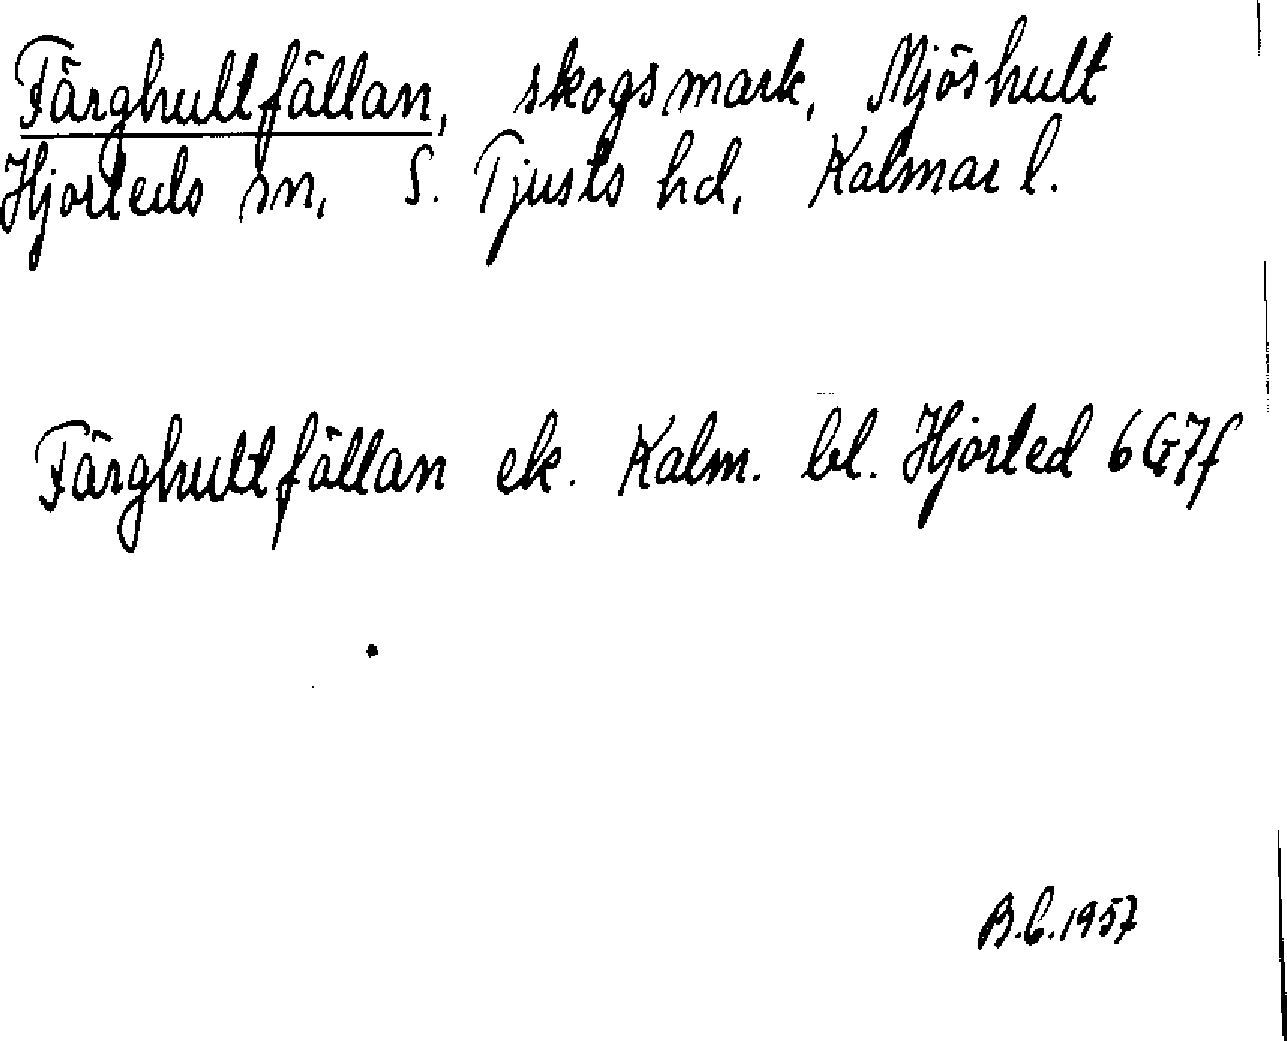 Färghultfällan, skogsmark, Mjöshult
Hjorteds sn, S. Tjusts hd, Kalmar l.
Färghultfällan ek. Kalm. bl. Hjorted 6G7f
B.G.1957